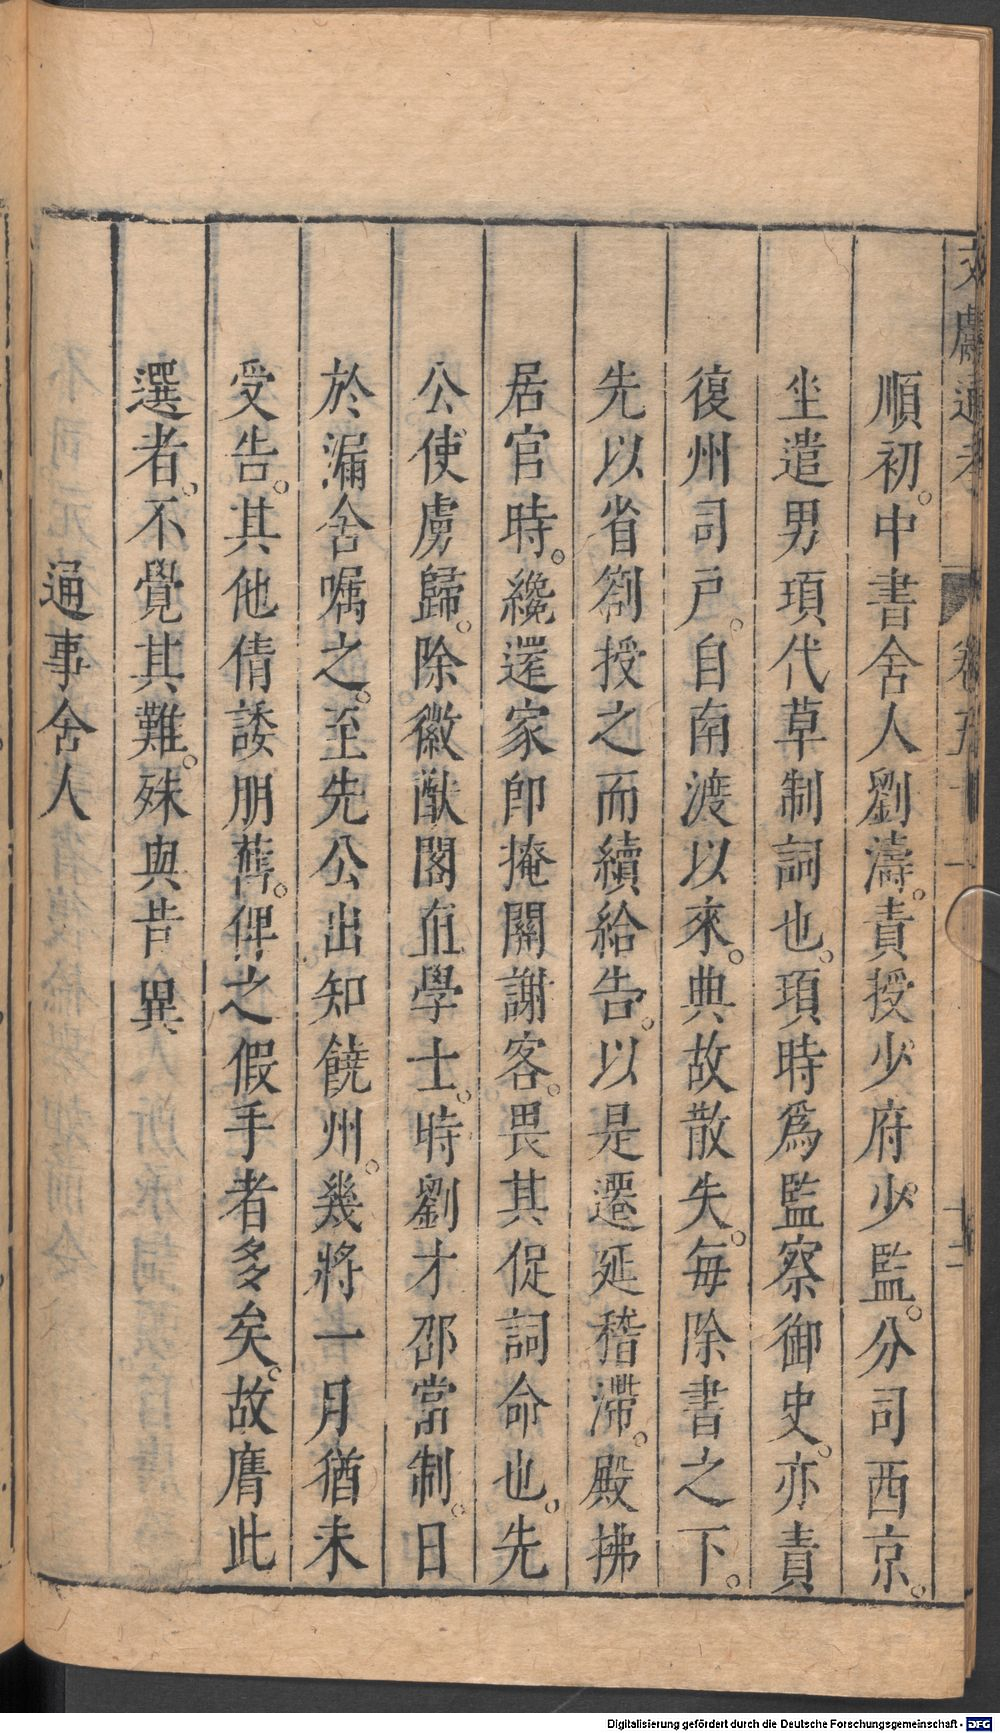 文處通考 卷五十一 十二
順初。中書舍人劉濤。責授少府少監。分司西京。
坐遣男頊代草制詞也。頊時爲監察御史。亦責
復州司戶。自南渡以來。典故散失。每除書之下。
先以省劄授之而續給告。以是遷延稽滯。殿拂
居官時。纔遷家即掩關謝客。畏其促詞命也。先
公使虜歸。除徽猷閣直學士。時劉才邵當制。日
於漏舍囑之。至先公出知饒州。幾將一月猶未
受告。其他倩諉朋舊。俾之假手者多矣。故膺此
選者。不覺其難。殊與昔異
通事舍人
Digitalisierung gefördert durch die Deutsche Forschungsgemeinschaft - DFG